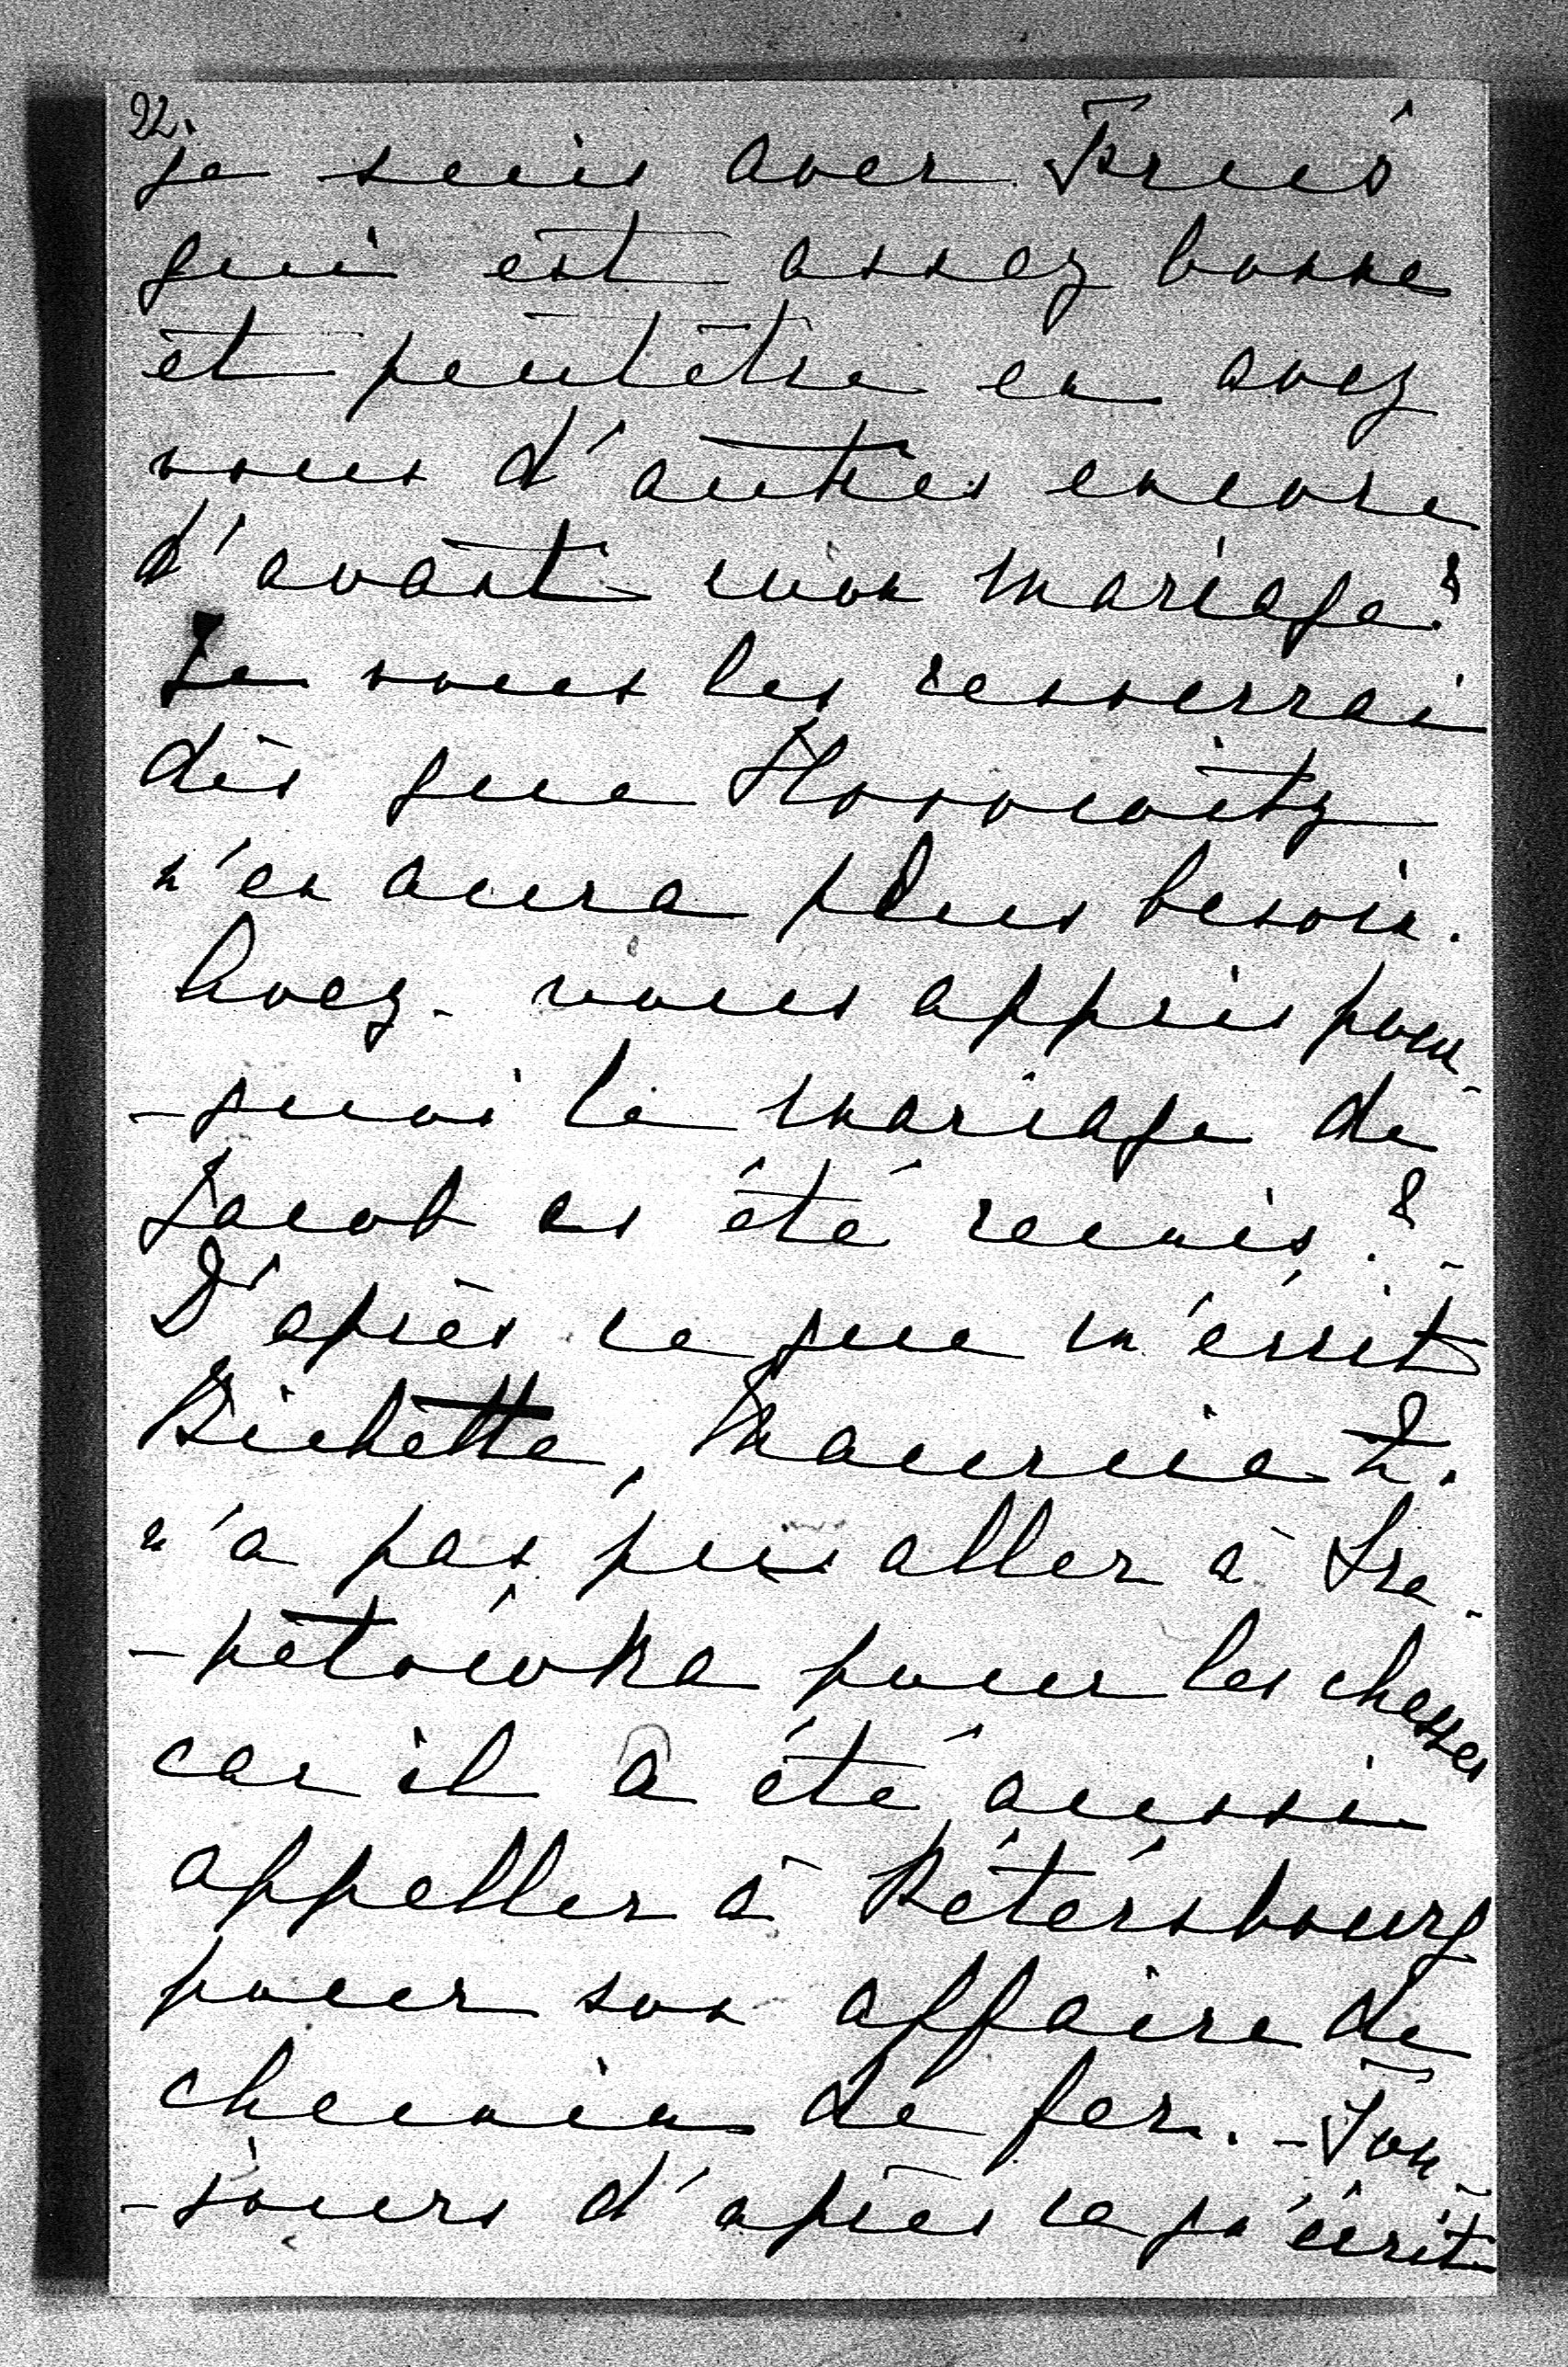 22.
je suis avec Fräus
qui est assez bonne
et peutêtre en avez
vous d'autres encore
d'avant mon mariage?
Je vous les renverrai
dès que Horowitz
n'en aura plus besoin.
Avez-vous appris pour-
-quoi le mariage de
Jacob as été remis? -
D'après ce que m'écrit
Bichette, Maurice Z.
n'a pas pus aller à Sze-
-petówka pour les chasses
car il a été aussi
appeller à Pétérsbourg
pour son affaire de
chemin de fer. - Tou-
-jours d'après ce qu'écrit